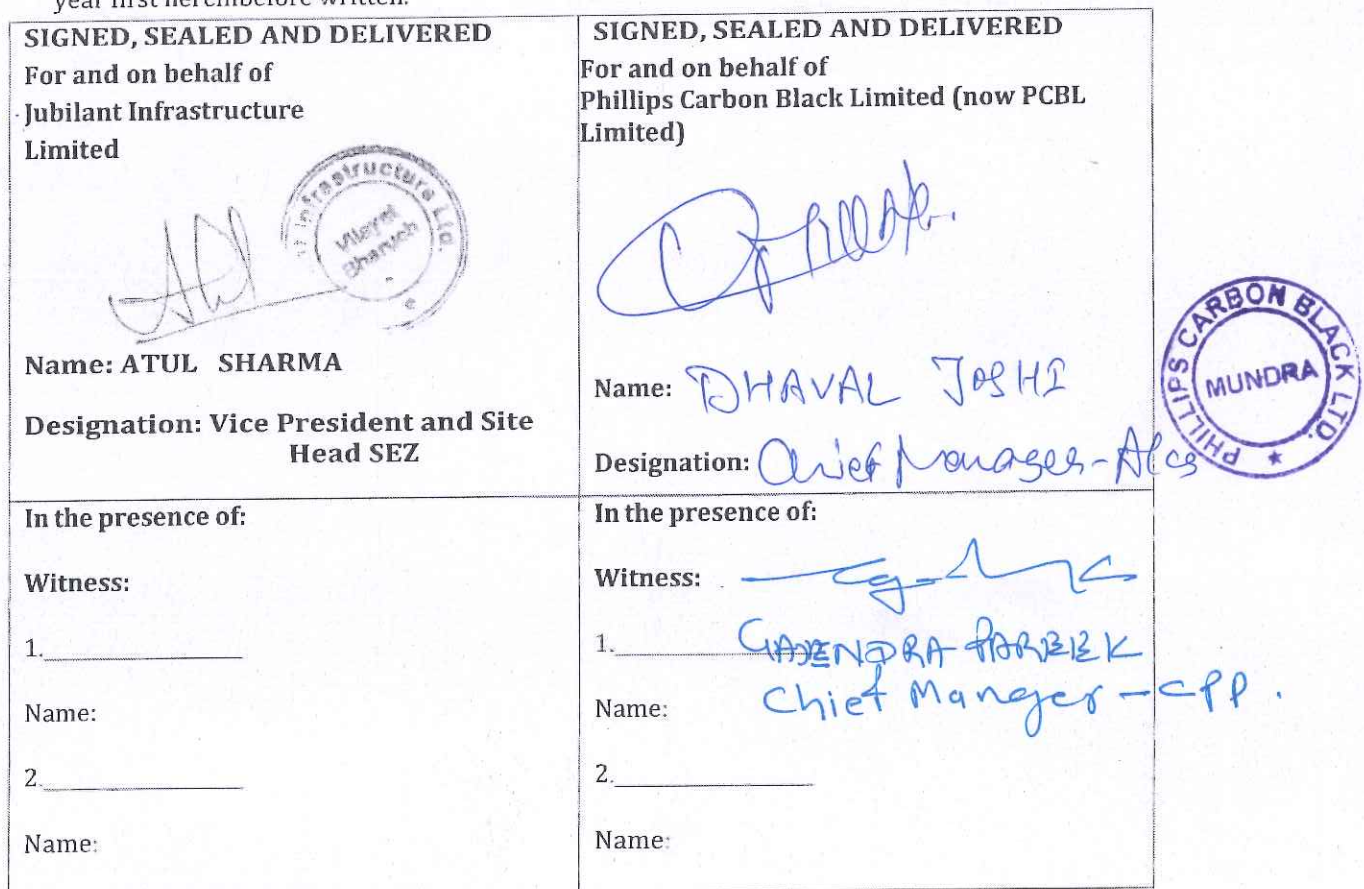 year first hereinbefore written.
SIGNED, SEALED AND DELIVERED
For and on behalf of
Jubilant Infrastructure
Limited
Infrastructure Ltd.
Vilayat
Bharuch
Name: ATUL SHARMA
Designation: Vice President and Site
Head SEZ
SIGNED, SEALED AND DELIVERED
For and on behalf of
Phillips Carbon Black Limited (now PCBL
Limited)
Name: DHAVAL JOSHI
Designation: Chief Manager-
PHILLIPS CARBON BLACK LTD.
MUNDRA
In the presence of:
Witness:
1.
Name:
2.
Name:
In the presence of:
Witness:
1. GAJENDRA PAREEK
Chief Manger - CPP.
Name:
2.
Name: